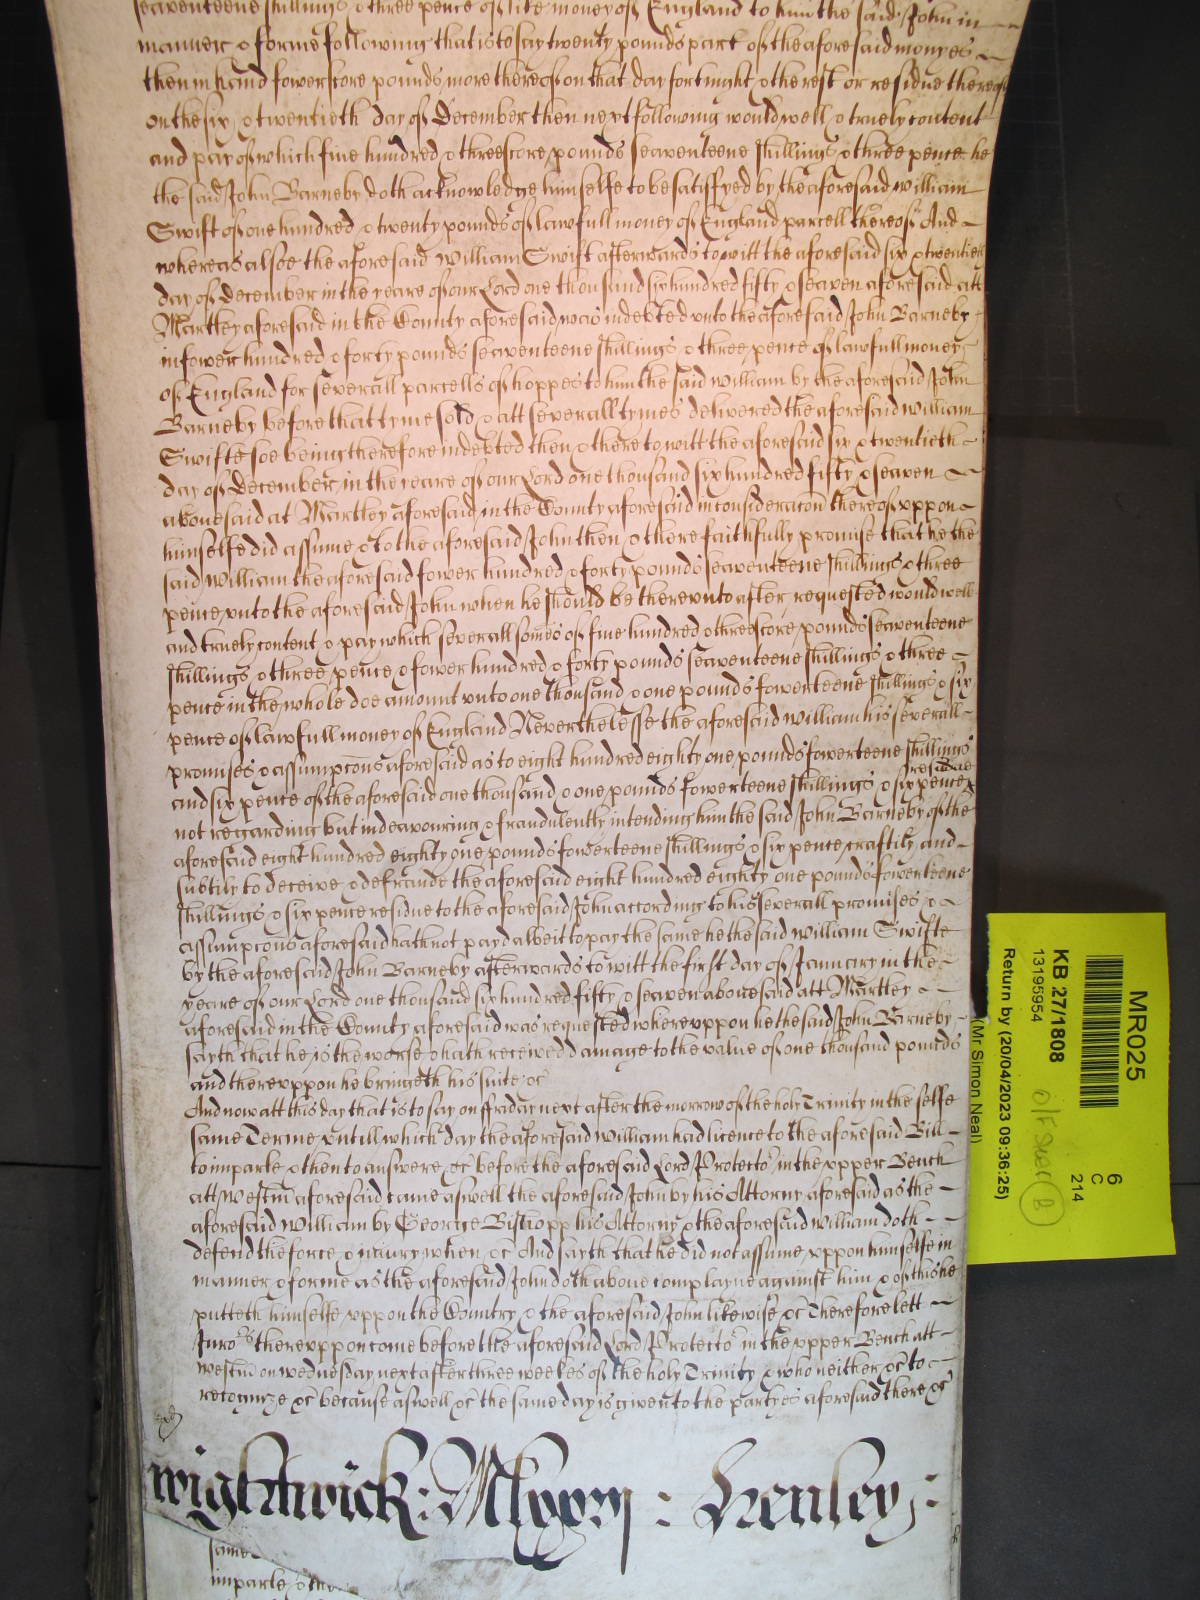 seaventeene shillings & three pence of like money of England to him the said John in
manner & forme following that is to say twenty pounds part of the aforesaid monyes
then in hand fower score pounds more thereof on that day fortnight & the rest or residue thereof
on the six & twentieth day of December then next following would well & truely content
and pay of which five hundred & threescore pounds seaventeene shillings & three pence he
the said John Barneby doth acknowledge himselfe to be satisfyed by the aforesaid William
Swift of one hundred & twenty pounds of lawfull money of England parcell thereof And
whereas alsoe the aforesaid William Swift afterwards to witt the aforesaid six & twentieth
day of December in the yeare of our Lord one thousand six hundred fifty & seaven aforesaid att
Martley aforesaid in the County aforesaid was indebted unto the aforesaid John Barneby
in fower hundred & forty pounds seaventeene shillings & three pence of lawfull money
of England for severall parcells of hoppes to him the said William by the aforesaid John
Barneby before that tyme sold & att severall tymes delivered the aforesaid William
Swifte soe being therefore indebted then & there to witt the aforesaid six & twentieth
day of December in the yeare of our Lord one thousand six hundred fifty & seaven
abovesaid at Martley aforesaid in the County aforesaid in consideracon thereof uppon
himselfe did assume & to the aforesaid John then & there faithfully promise that he the
said William the aforesaid fower hundred & forty pounds seaventeene shillings & three
pence unto the aforesaid John when he should be thereunto after requested would well
and truely content & pay which severall somes of five hundred & threescore pounds seaventeene
shillings & three pence & fower hundred & forty pounds seaventeene shillings & three
pence in the whole doe amount unto one thousand & one pounds fowerteene shillings & six
pence of lawfull money of England Neverthelesse the aforesaid William his severall
promises & assumpcons aforesaid as to eight hundred eighty one pounds fowerteene shillings
and six pence of the aforesaid one thousand & one pounds fowerteene shillings & six pence residue
not regarding but indeavouring & fraudulently intending him the said John Barneby of the
aforesaid eight hundred eighty one pounds fowerteene shillings & six pence craftily and
subtily to deceive & defraude the aforesaid eight hundred eighty one pounds fowerteene
shillings & six pence residue to the aforesaid John according to his severall promises &
assumpcons aforesaid hath not payd albeit to pay the same he the said William Swifte
by the aforesaid John Barneby afterwards to witt the first day of January in the
yeare of our Lord one thousand six hundred fifty & seaven abovesaid att Martley
aforesaid in the County aforesaid was requested whereuppon he the said John Barneby
sayth that he is the worse & hath received damage to the value of one thousand pounds
and thereuppon he bringeth his suite &c
And now att this day that is to say on ffriday next after the morrow of the holy Trinity in the selfe
same Terme untill which day the aforesaid William had licence to the aforesaid Bill
to imparle & then to answere &c before the aforesaid Lord Protector in the upper Bench
att Westm aforesaid came aswell the aforesaid John by his Attorny aforesaid as the
aforesaid William by George Bishopp his Attorny & the aforesaid William doth
defend the force & injury when &c And sayth that he did not assume uppon himselfe in
manner & forme as the aforesaid John doth above complayne against him & of this he
putteth himselfe uppon the Country & the aforesaid John likewise &c Therefore lett
Juro^rs thereuppon come before the aforesaid Lord Protector in the upper Bench att
Westm on wednesday next after three weekes of the holy Trinity & who neither &c to
recognize &c because aswell &c the same day is given to the partyes aforesaid there &c
Wightwick: Mlxxvj : Henley:
same
imparle & then
MR025
6
C
214
KB 27/1808
13195954
Return by (20/04/2023 09:36:25)
(Mr Simon Neal)